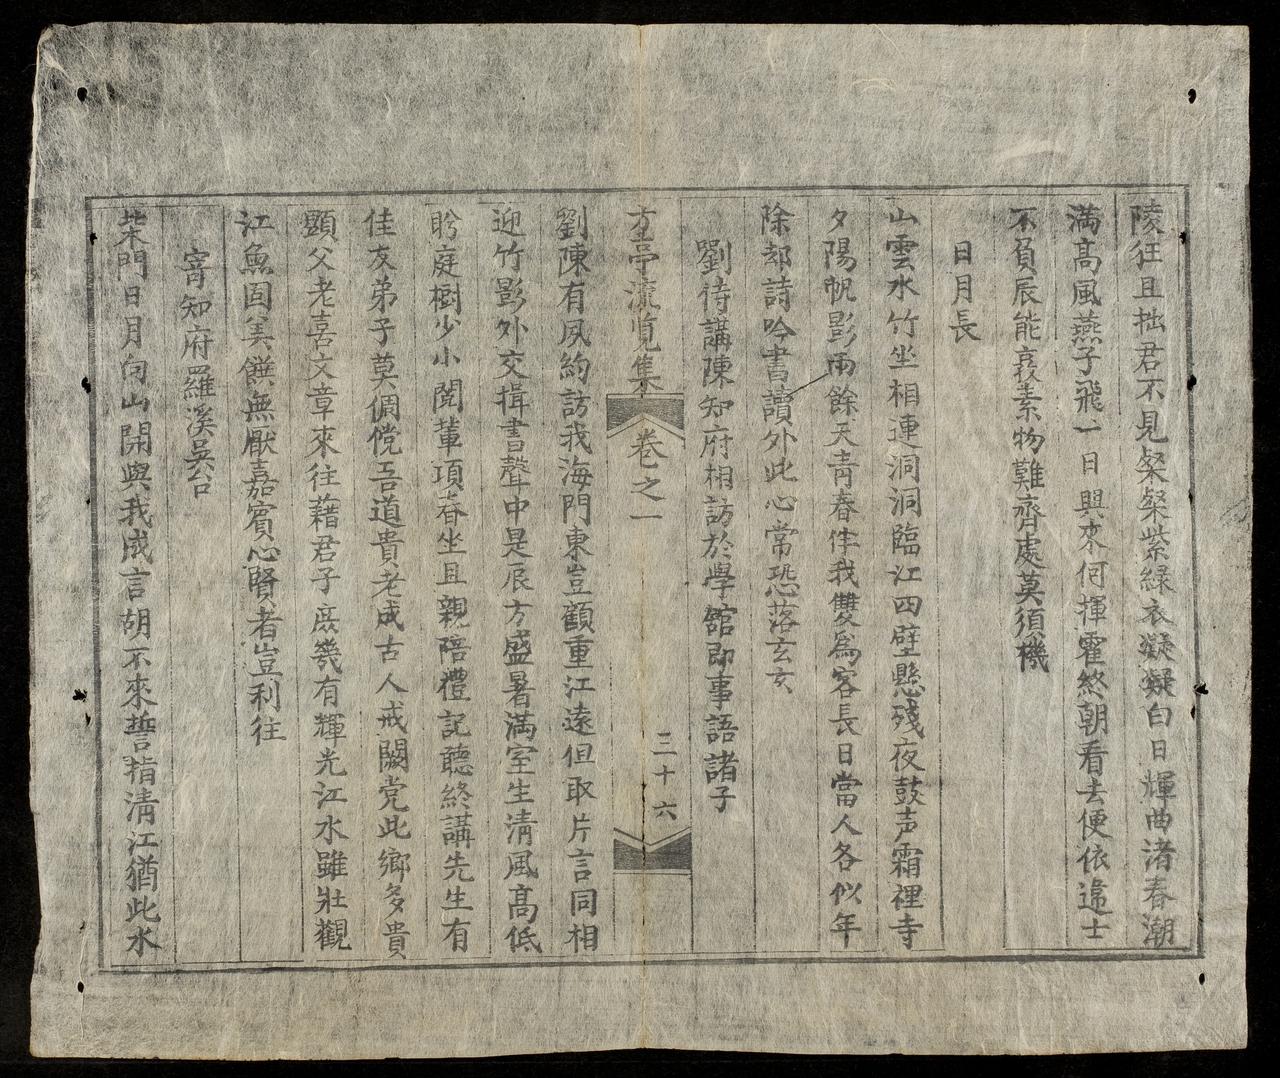 陵狂且拙君不見粲粲紫綠衣凝凝白日輝曲渚春潮
滿高風燕子飛一日興來何揮霍終朝看去便依違士
不負辰能哀素物難齊處莫須機
日月長
山雲水竹坐相連洞洞臨江四壁懸殘夜鼓声霜裡寺
夕陽帆影雨餘天青春伴我雙爲客長日當人各似年
除却詩吟書讀外此心常恐落玄玄
劉待講陳知府相訪於學舘即事語諸子
方亭流覧集
卷之一
三十六
劉陳有夙約訪我海門東豈顧重江遠但取片言同相
迎竹影外交揖書聲中是辰方盛暑滿室生清風高低
盻庭樹少小閲輩項春坐且親陪禮記聽終講先生有
佳友弟子莫倜儻吾道貴老成古人戒闕党此鄉多貴
顕父老喜文章來往藉君子庶幾有輝光江水雖壯觀
江魚固美饌無厭嘉賓心賢者豈利往
寄知府羅溪吳公
柴門日月向山開與我成言胡不來誓指清江猶此水